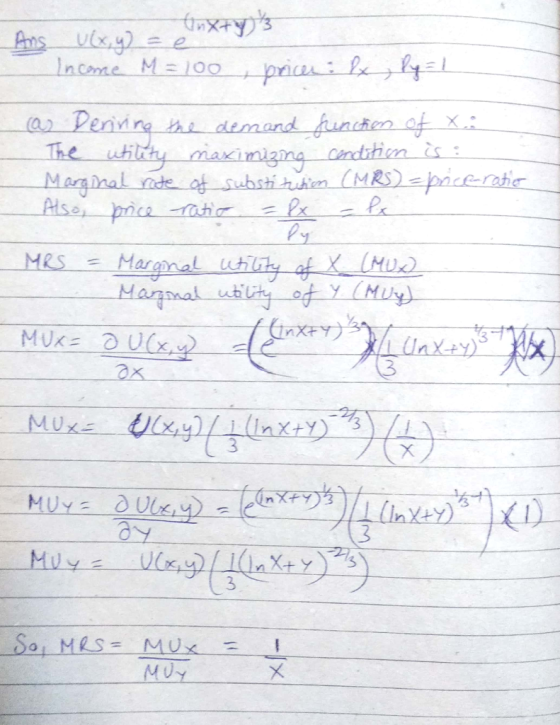 Ans U(x,y) = e^(lnx+y)^1/3
Income M = 100, prices: Px, Py=1
(a) Deriving the demand function of x:
The utility maximizing condition is:
Marginal rate of substitution (MRS) = price-ratio
Also, price-ratio = Px/Py = Px
MRS = Marginal utility of X (MUx) / Marginal utility of Y (MUy)
MUx = ∂U(x,y)/∂x = (e^(lnx+y)^1/3)(1/3 (lnx+y)^1/3-1)(1/x)
MUx = U(x,y)(1/3(lnx+y)^-2/3)(1/x)
MUy = ∂U(x,y)/∂y = (e^(lnx+y)^1/3)(1/3(lnx+y)^1/3-1)(1)
MUy = U(x,y)(1/3(lnx+y)^-2/3)
So, MRS = MUx/MUy = 1/x